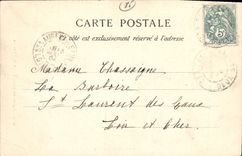 CARTE POSTALE
Ce côté est exclusivement réservé à l'adresse
5
Madame Chassaigne
La Barboire
St Laurent des Eaux
Loir et Cher